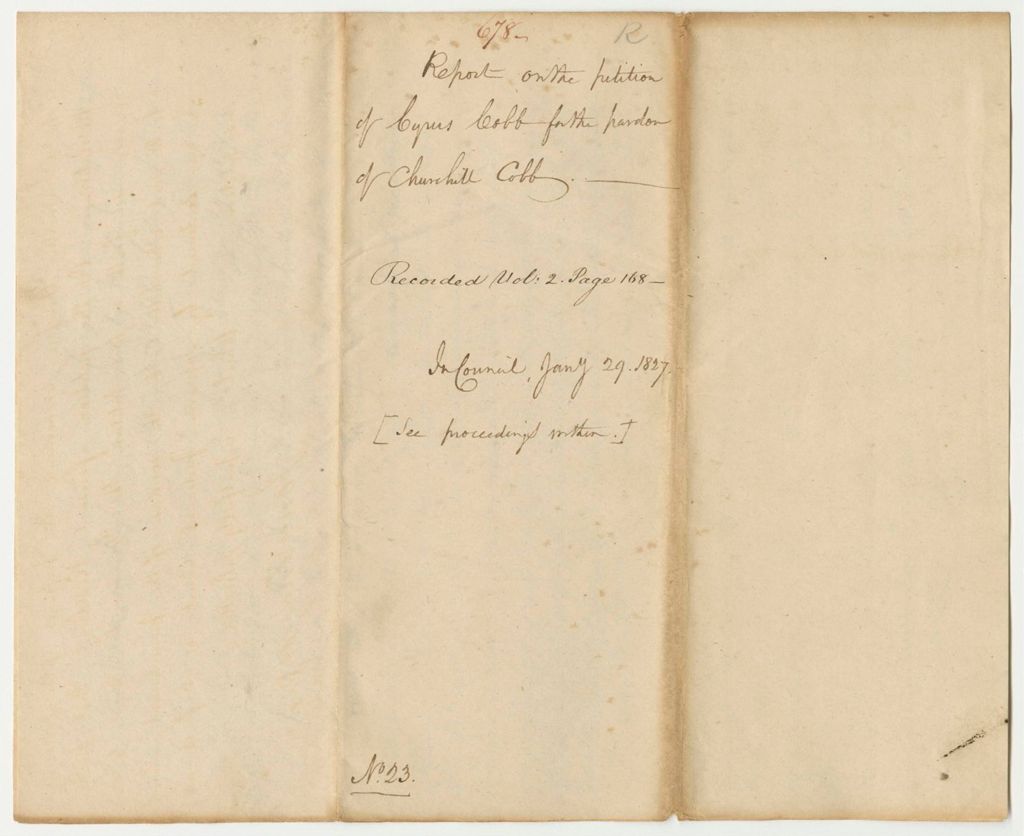 678-
R
Report on the petition
of Cyrus Cobb for the pardon
of Churchill Cobb.
Recorded Vol: 2. Page 168-
In Council, Jany 29. 1827.
[See proceedings within.]
No. 23.